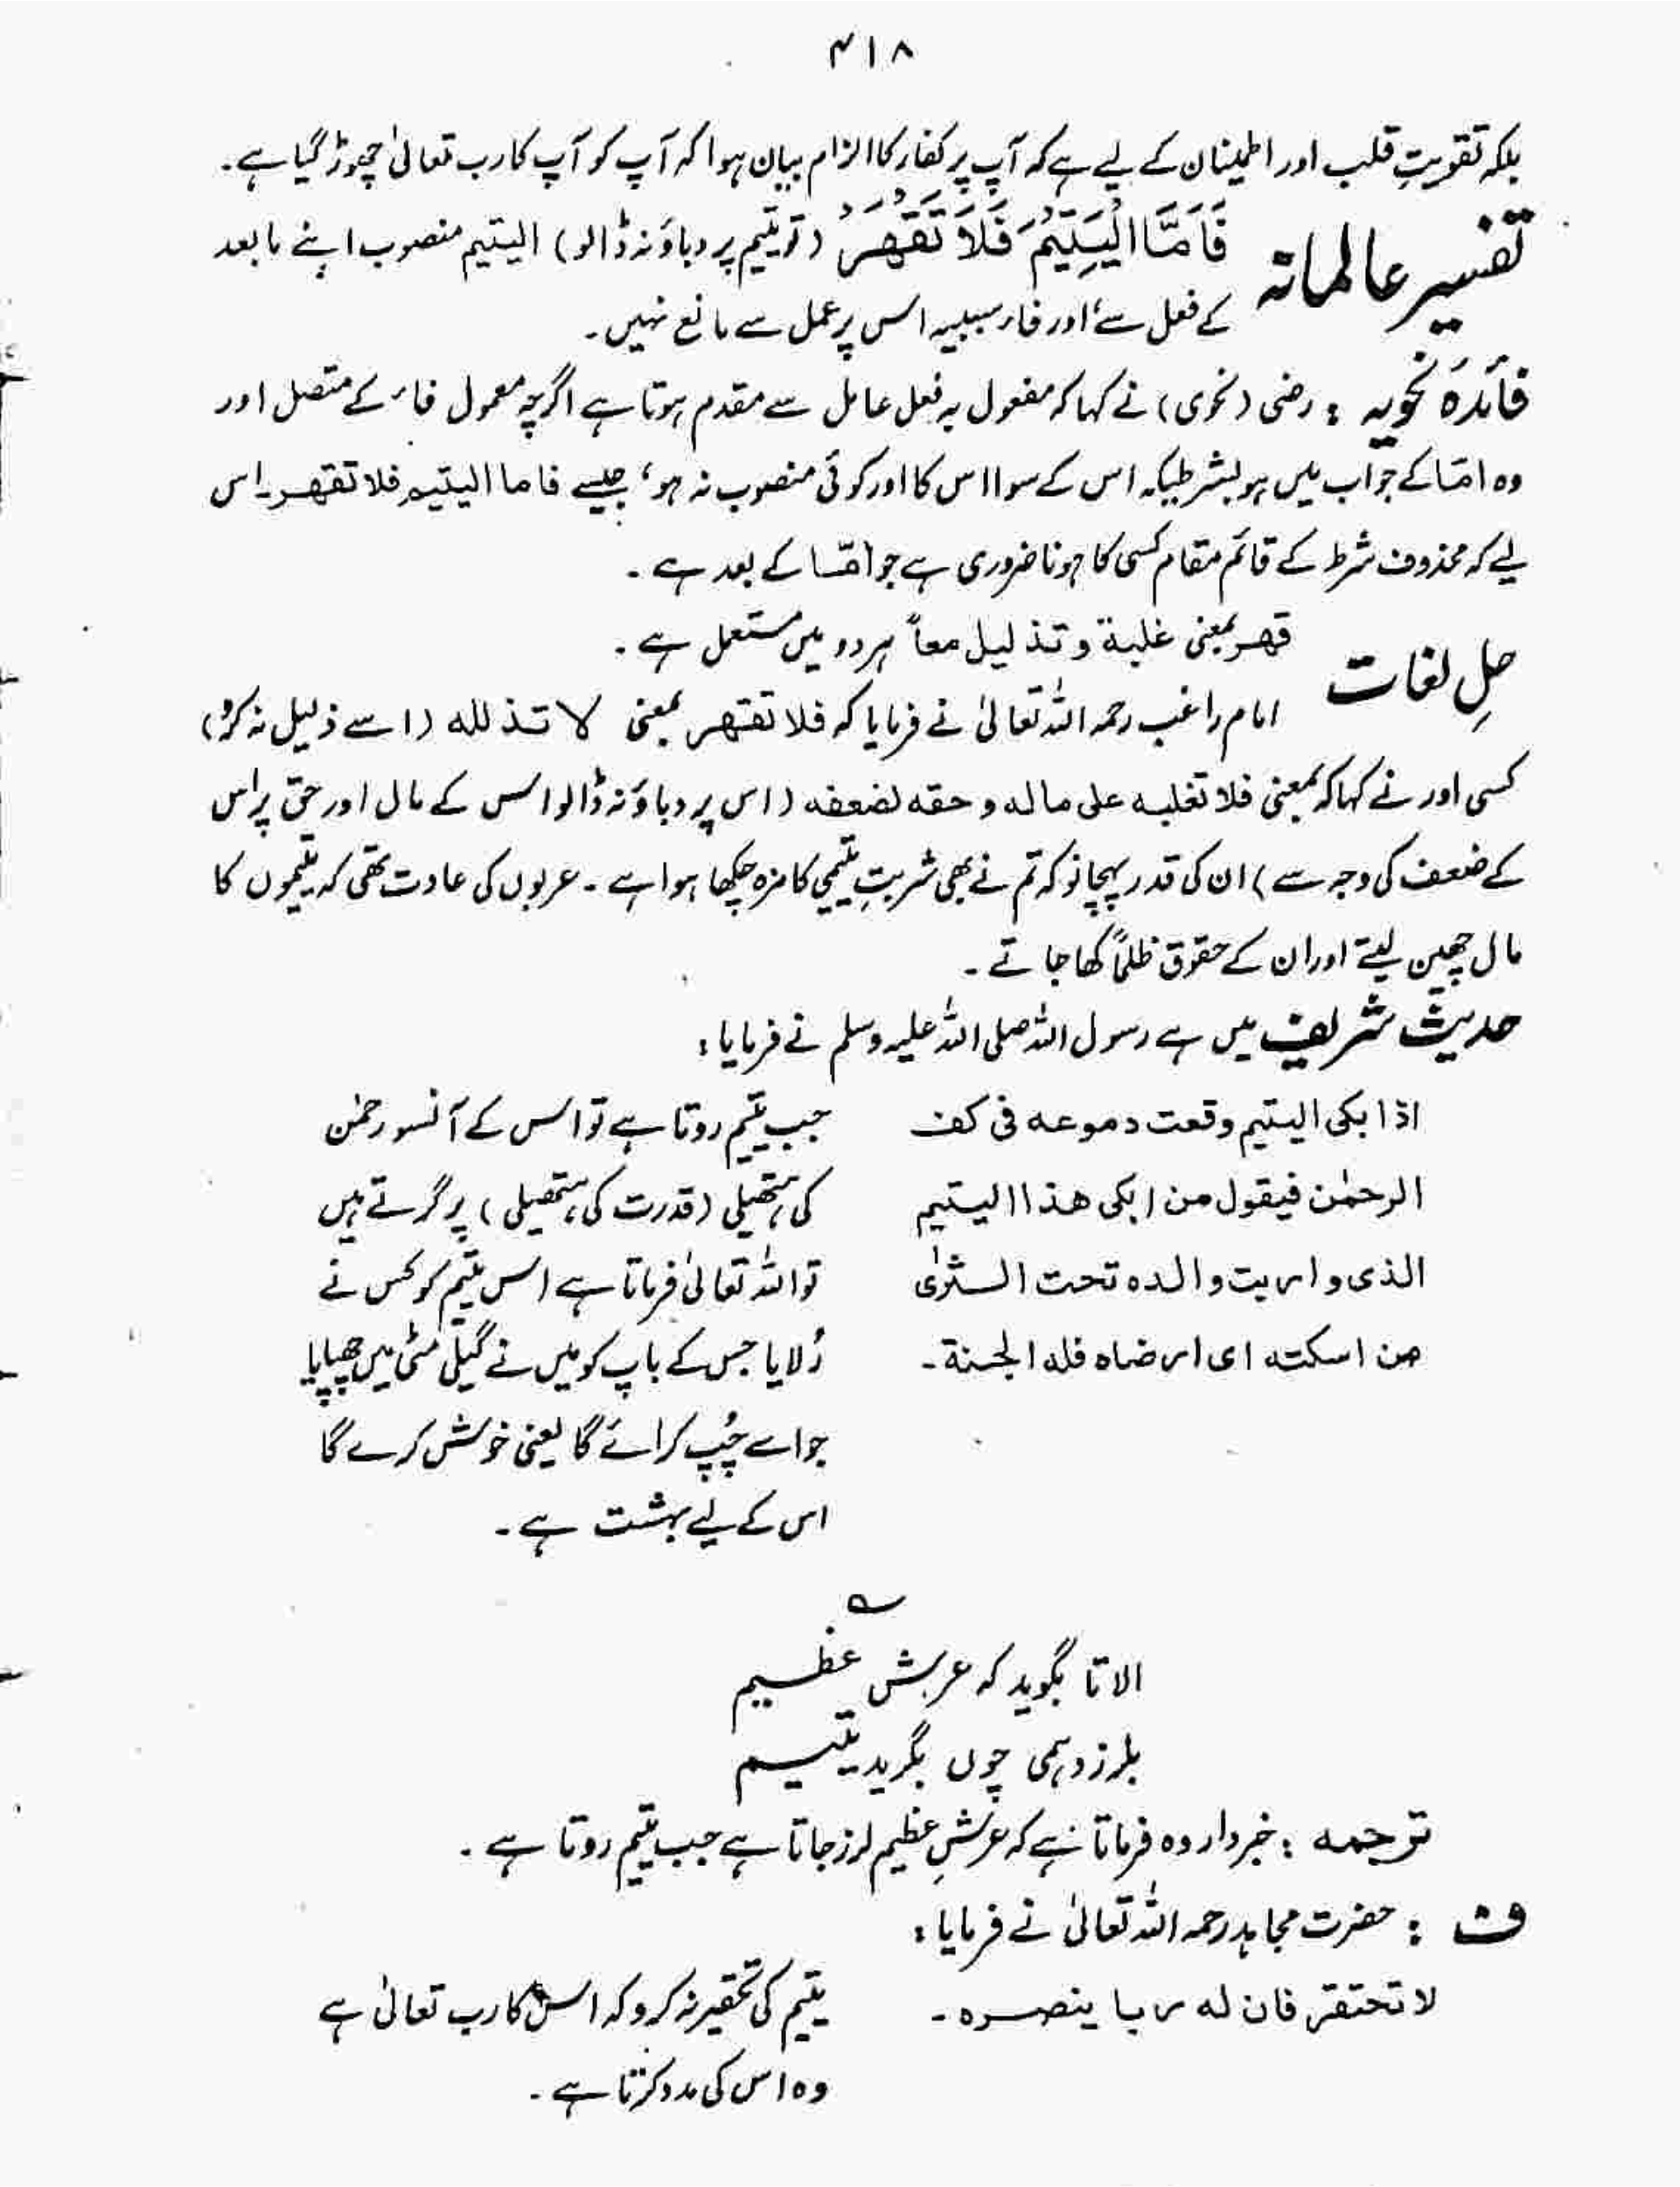 ۴۱۸
بلکہ تقویتِ قلب اور اطمینان کے لیے ہے کہ آپ پر کفار کا الزام بیان ہوا کہ آپ کو آپ کا رب تعالیٰ چھوڑ گیا ہے۔
تفسیر عالمانہ فَاَمَّا الْیَتِیْمَ فَلَا تَقْهَرْ (تو یتیم پر دباؤ نہ ڈالو) الیتیم منصوب اپنے مابعد
کے فعل سے، اور فاء سببیہ اس پر عمل سے مانع نہیں۔
فائدہ نحویہ : رضی (نحوی) نے کہا کہ مفعول بہ فعل عامل سے مقدم ہوتا ہے اگرچہ معمول فاء کے متصل اور
وہ امّا کے جواب میں ہو بشرطیکہ اس کے سوا اس کا اور کوئی منصوب نہ ہو، جیسے فاما الیتیم فلا تقهر۔ اس
لیے کہ محذوف شرط کے قائم مقام کسی کا ہونا ضروری ہے جو امّا کے بعد ہے۔
حلِ لغات قهر بمعنی غلبة و تذلیل معاً ہر دو میں مستعمل ہے۔
امام راغب رحمہ اللہ تعالیٰ نے فرمایا کہ فلا تقهر بمعنی لا تذلله (اسے ذلیل نہ کرو)
کسی اور نے کہا کہ بمعنی فلا تغلبه على ماله و حقه لضعفه (اس پر دباؤ نہ ڈالو اس کے مال اور حق پر اس
کے ضعف کی وجہ سے) ان کی قدر پہچانو کہ تم نے بھی شربتِ یتیمی کا مزہ چکھا ہوا ہے۔ عربوں کی عادت تھی کہ یتیموں کا
مال چھین لیتے اور ان کے حقوق ظلماً کھا جاتے۔
حدیث شریف میں ہے رسول اللہ صلی اللہ علیہ وسلم نے فرمایا :
اذا بكى اليتيم وقعت دموعه فى كف
الرحمٰن فيقول من ابكى هذا اليتيم
الذى واريت والده تحت الثرىٰ
من اسكته اى ارضاه فله الجنة۔
جب یتیم روتا ہے تو اس کے آنسو رحمٰن
کی ہتھیلی (قدرت کی ہتھیلی) پر گرتے ہیں
تو اللہ تعالیٰ فرماتا ہے اس یتیم کو کس نے
رُلایا جس کے باپ کو میں نے گیلی مٹی میں چھپایا
جو اسے چُپ کرائے گا یعنی خوش کرے گا
اس کے لیے بہشت ہے۔
؎
الا تا بگوید کہ عرش عظیم
بلرزد ہمی چوں بگرید یتیم
ترجمہ : خبردار وہ فرماتا ہے کہ عرشِ عظیم لرز جاتا ہے جب یتیم روتا ہے۔
ف : حضرت مجاہد رحمہ اللہ تعالیٰ نے فرمایا :
لا تحتقر فان له ربا ينصره۔
یتیم کی تحقیر نہ کرو کہ اس کا رب تعالیٰ ہے
وہ اس کی مدد کرتا ہے۔